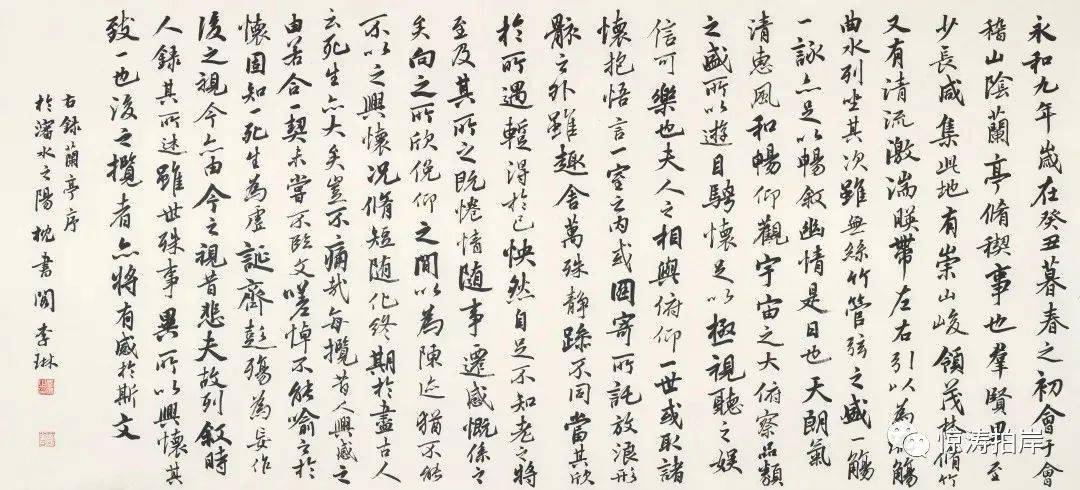 永和九年歲在癸丑暮春之初會于會
稽山陰蘭亭脩稧事也羣賢畢至
少長咸集此地有崇山峻領茂林脩竹
又有清流激湍暎帶左右引以為流觴
曲水列坐其次雖無絲竹管弦之盛一觴
一詠亦足以暢敘幽情是日也天朗氣
清惠風和暢仰觀宇宙之大俯察品類
之盛所以遊目騁懷足以極視聽之娱
信可樂也夫人之相與俯仰一世或取諸
懷抱悟言一室之内或因寄所託放浪形
骸之外雖趣舍萬殊靜躁不同當其欣
於所遇蹔得於己怏然自足不知老之將
至及其所之既惓情随事遷感慨係之
矣向之所欣俛仰之間以為陳迹猶不能
不以之興懷況脩短随化終期於盡古人
云死生亦大矣豈不痛哉每攬昔人興感之
由若合一契未嘗不臨文嗟悼不能喻之於
懷固知一死生為虛誕齊彭殤為妄作
後之視今亦由今之視昔悲夫故列敘時
人錄其所述雖世殊事異所以興懷其
致一也後之攬者亦將有感於斯文
右錄蘭亭序
於瀋水之陽枕書閣李琳
惊涛拍岸